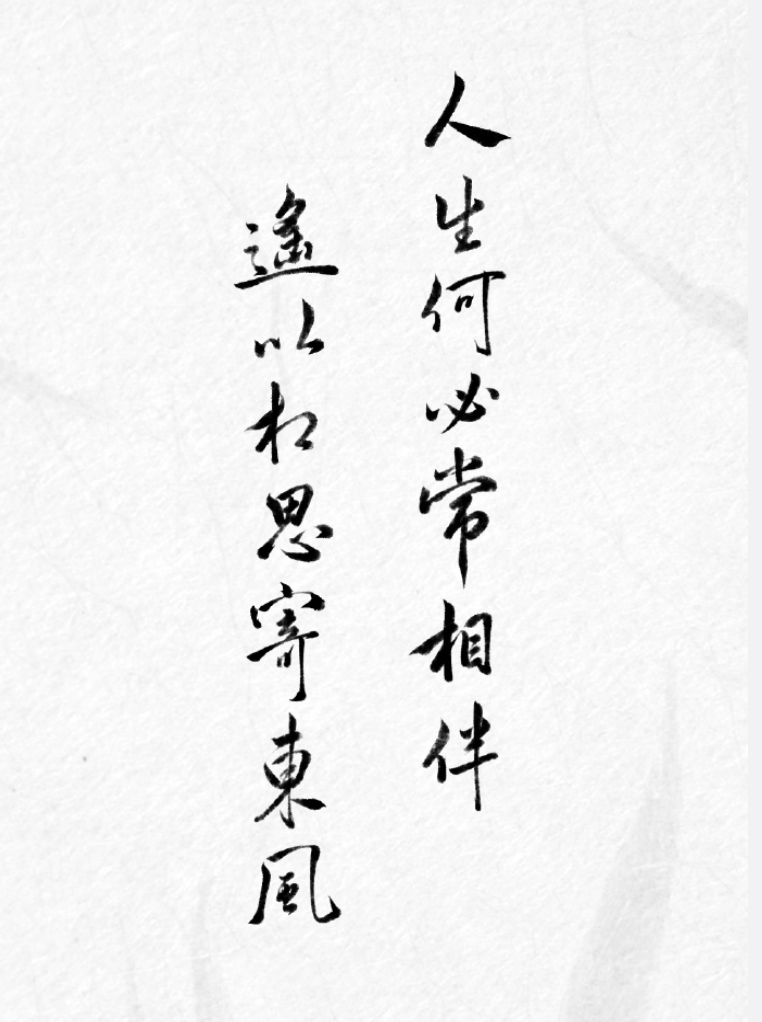 人生何必常相伴
遙以相思寄東風